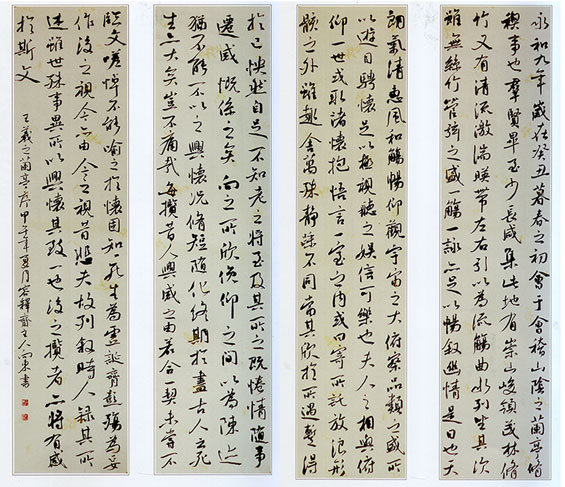 永和九年歲在癸丑暮春之初會于會稽山陰之蘭亭脩
禊事也羣賢畢至少長咸集此地有崇山峻領茂林脩
竹又有清流激湍暎帶左右引以為流觴曲水列坐其次
雖無絲竹管弦之盛一觴一詠亦足以暢敘幽情是日也天
朗氣清惠風和暢仰觀宇宙之大俯察品類之盛所
以遊目騁懷足以極視聽之娛信可樂也夫人之相與俯
仰一世或取諸懷抱悟言一室之內或因寄所託放浪形
骸之外雖趣舍萬殊靜躁不同當其欣於所遇暫得
於己怏然自足不知老之將至及其所之既惓情隨事
遷感慨係之矣向之所欣俛仰之間以為陳迹
猶不能不以之興懷況脩短隨化終期於盡古人云死
生亦大矣豈不痛哉每攬昔人興感之由若合一契未嘗不
臨文嗟悼不能喻之於懷固知一死生為虛誕齊彭殤為妄
作後之視今亦由今之視昔悲夫故列敘時人錄其所
述雖世殊事異所以興懷其致一也後之攬者亦將有感
於斯文
王羲之蘭亭序甲午年夏月 齋主人 東書